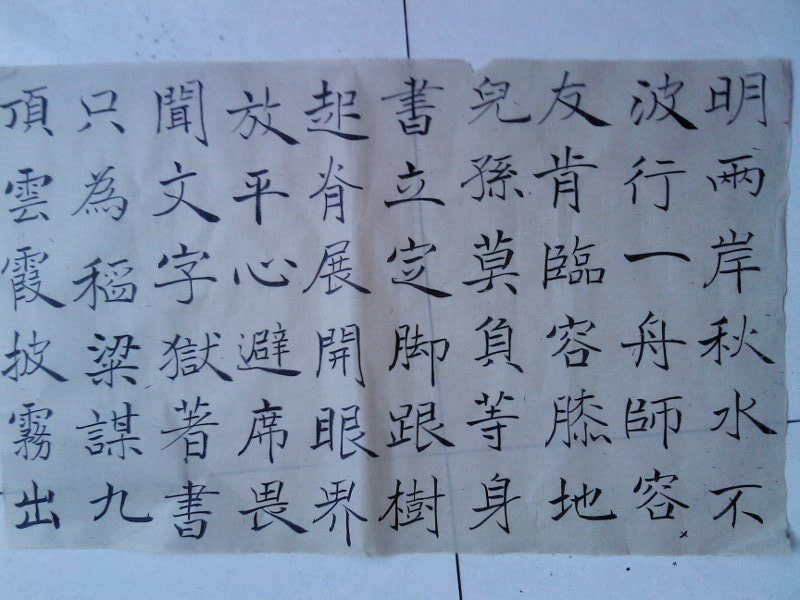 明兩岸秋水不
波行一舟師容
友肯臨容膝地
兒孫莫負等身
書立定脚跟樹
起脊展開眼界
放平心避席畏
聞文字獄著書
只為稻粱謀九
頂雲霞披霧出